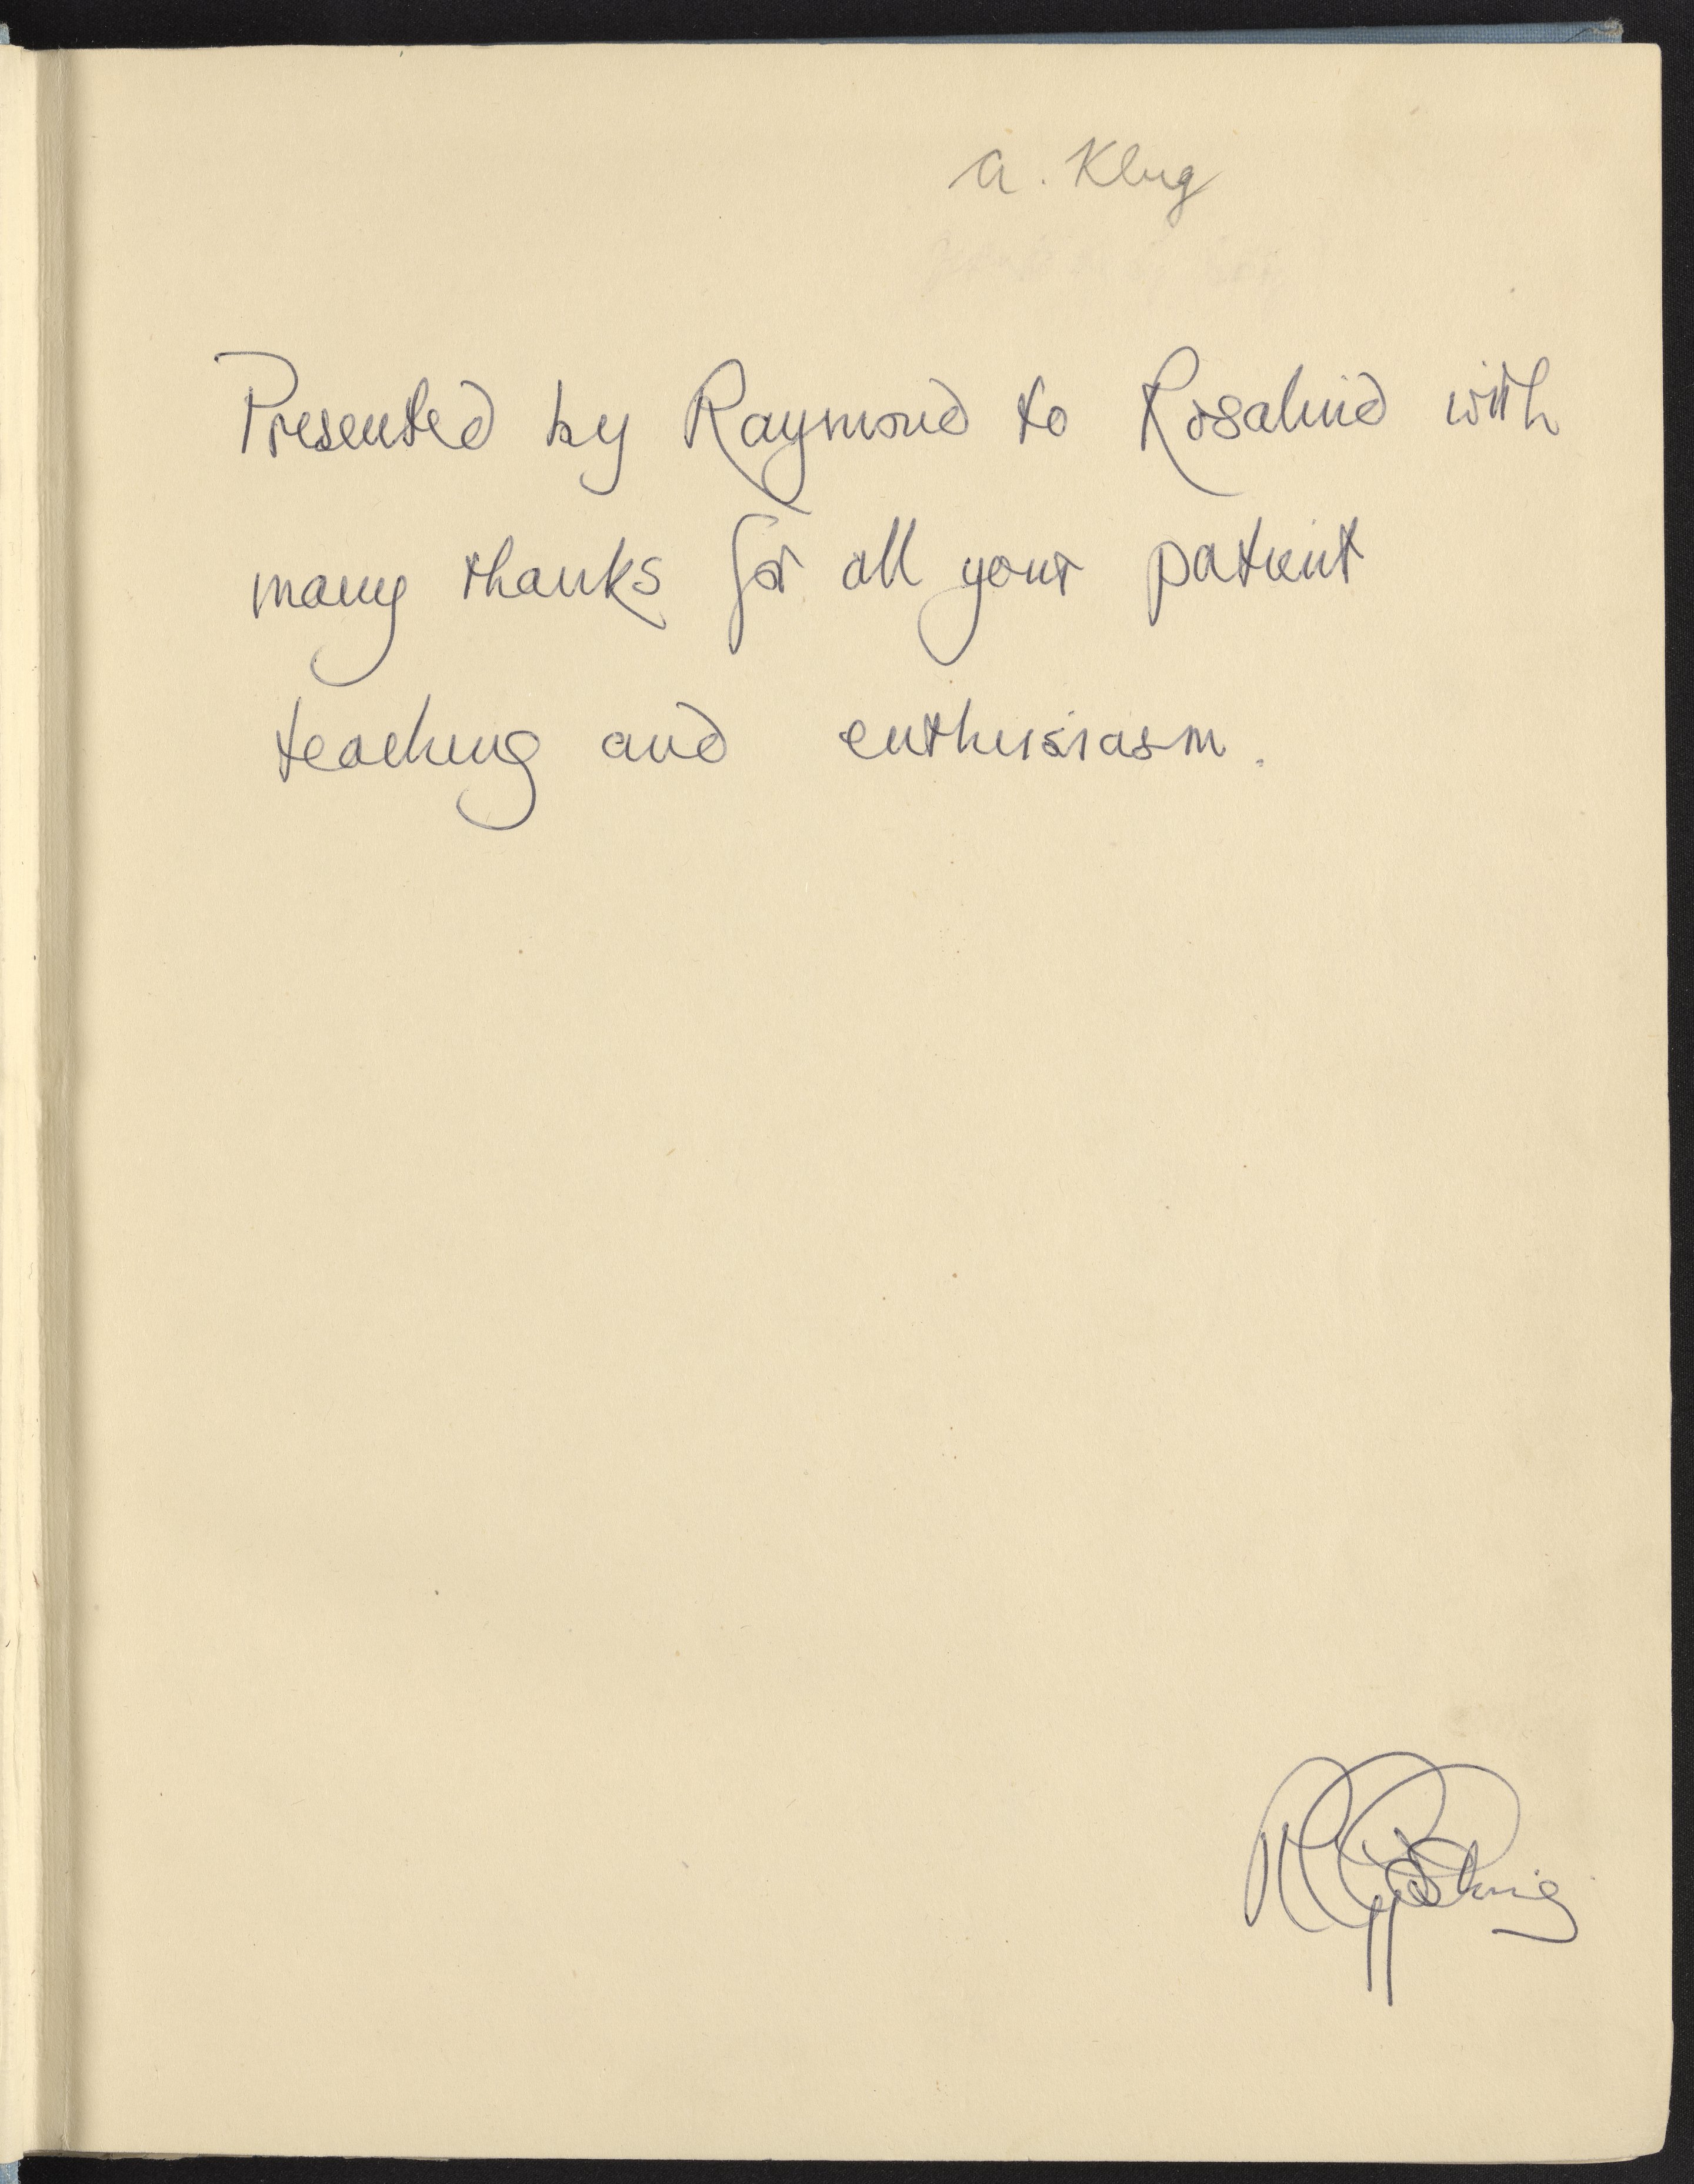 A. Klug
Presented by Raymond to Rosalind with
many thanks for all your patient
teaching and enthusiasm.